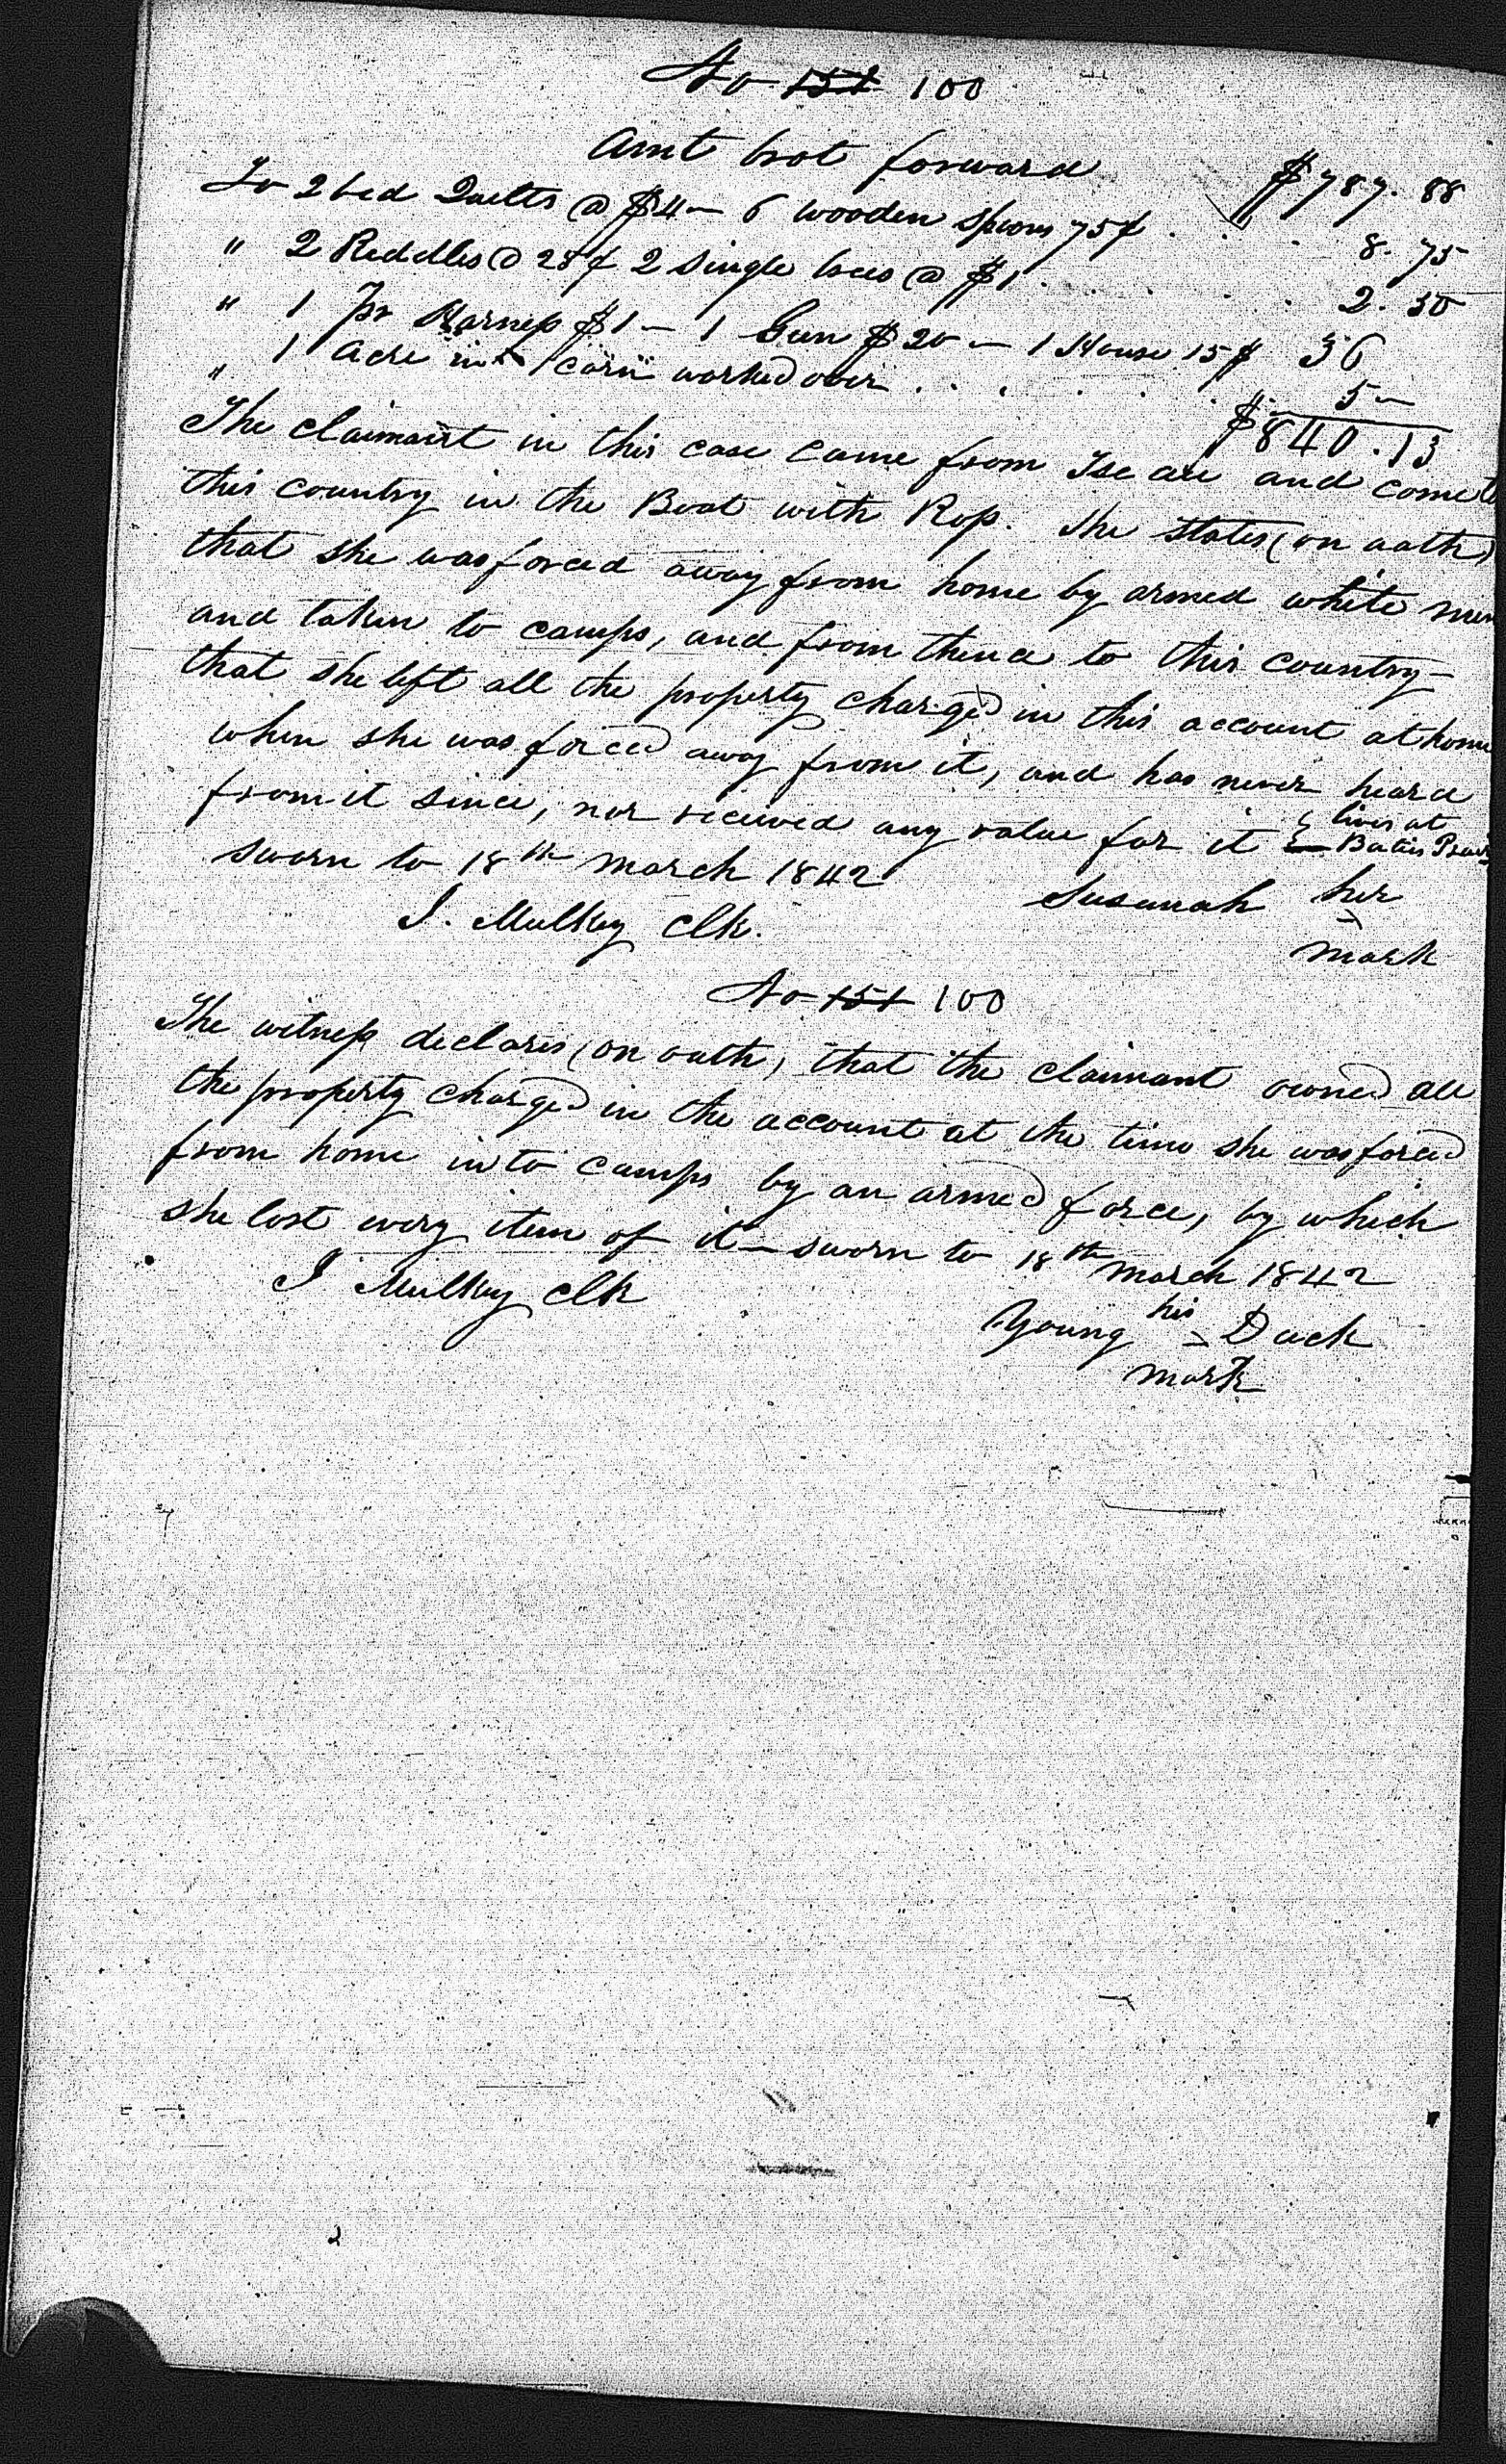 No 151 100
Amt brot forward $787.88
To 2 bed Quilts @ $4 — 6 wooden spoons 75¢ . . . 8.75
" 2 Riddles @ 25¢ 2 single trees @ $1 . . . . . 2.50
" 1 pr Harness $1 — 1 Gun $20 — 1 House 15$ 36
" 1 acre in corn worked over . . . . . . 5 —
$840.13
The claimant in this case came from and come to
this country in the Boat with Ross. She states (on oath)
that she was forced away from home by armed white men
and taken to camps, and from thence to this country —
that she left all the property charged in this account at home
when she was forced away from it, and has never heard
from it since, nor received any value for it lives at
sworn to 18th march 1842 Susannah her
J. Mulkey Clk. mark
No 151 100
The witness declares (on oath) that the claimant owned all
the property charged in the account at the time she was forced
from home into camps by an armed force, by which
she lost every item of it — sworn to 18th march 1842
J Mulkey Clk
Young his Duck
mark